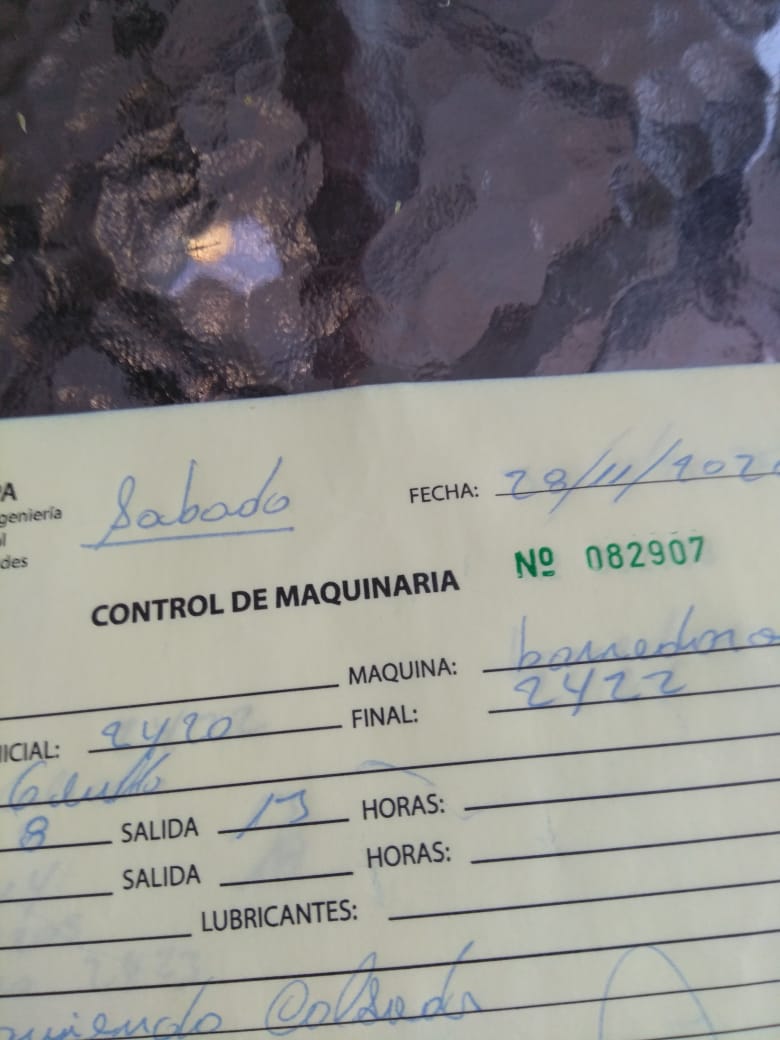 PA
geniería
Sabado
FECHA: 28/11/202
l
des
Nº 082907
CONTROL DE MAQUINARIA
MAQUINA: barredora
NICIAL: 2420 FINAL: 2422
8 SALIDA 13 HORAS:
SALIDA HORAS:
LUBRICANTES: